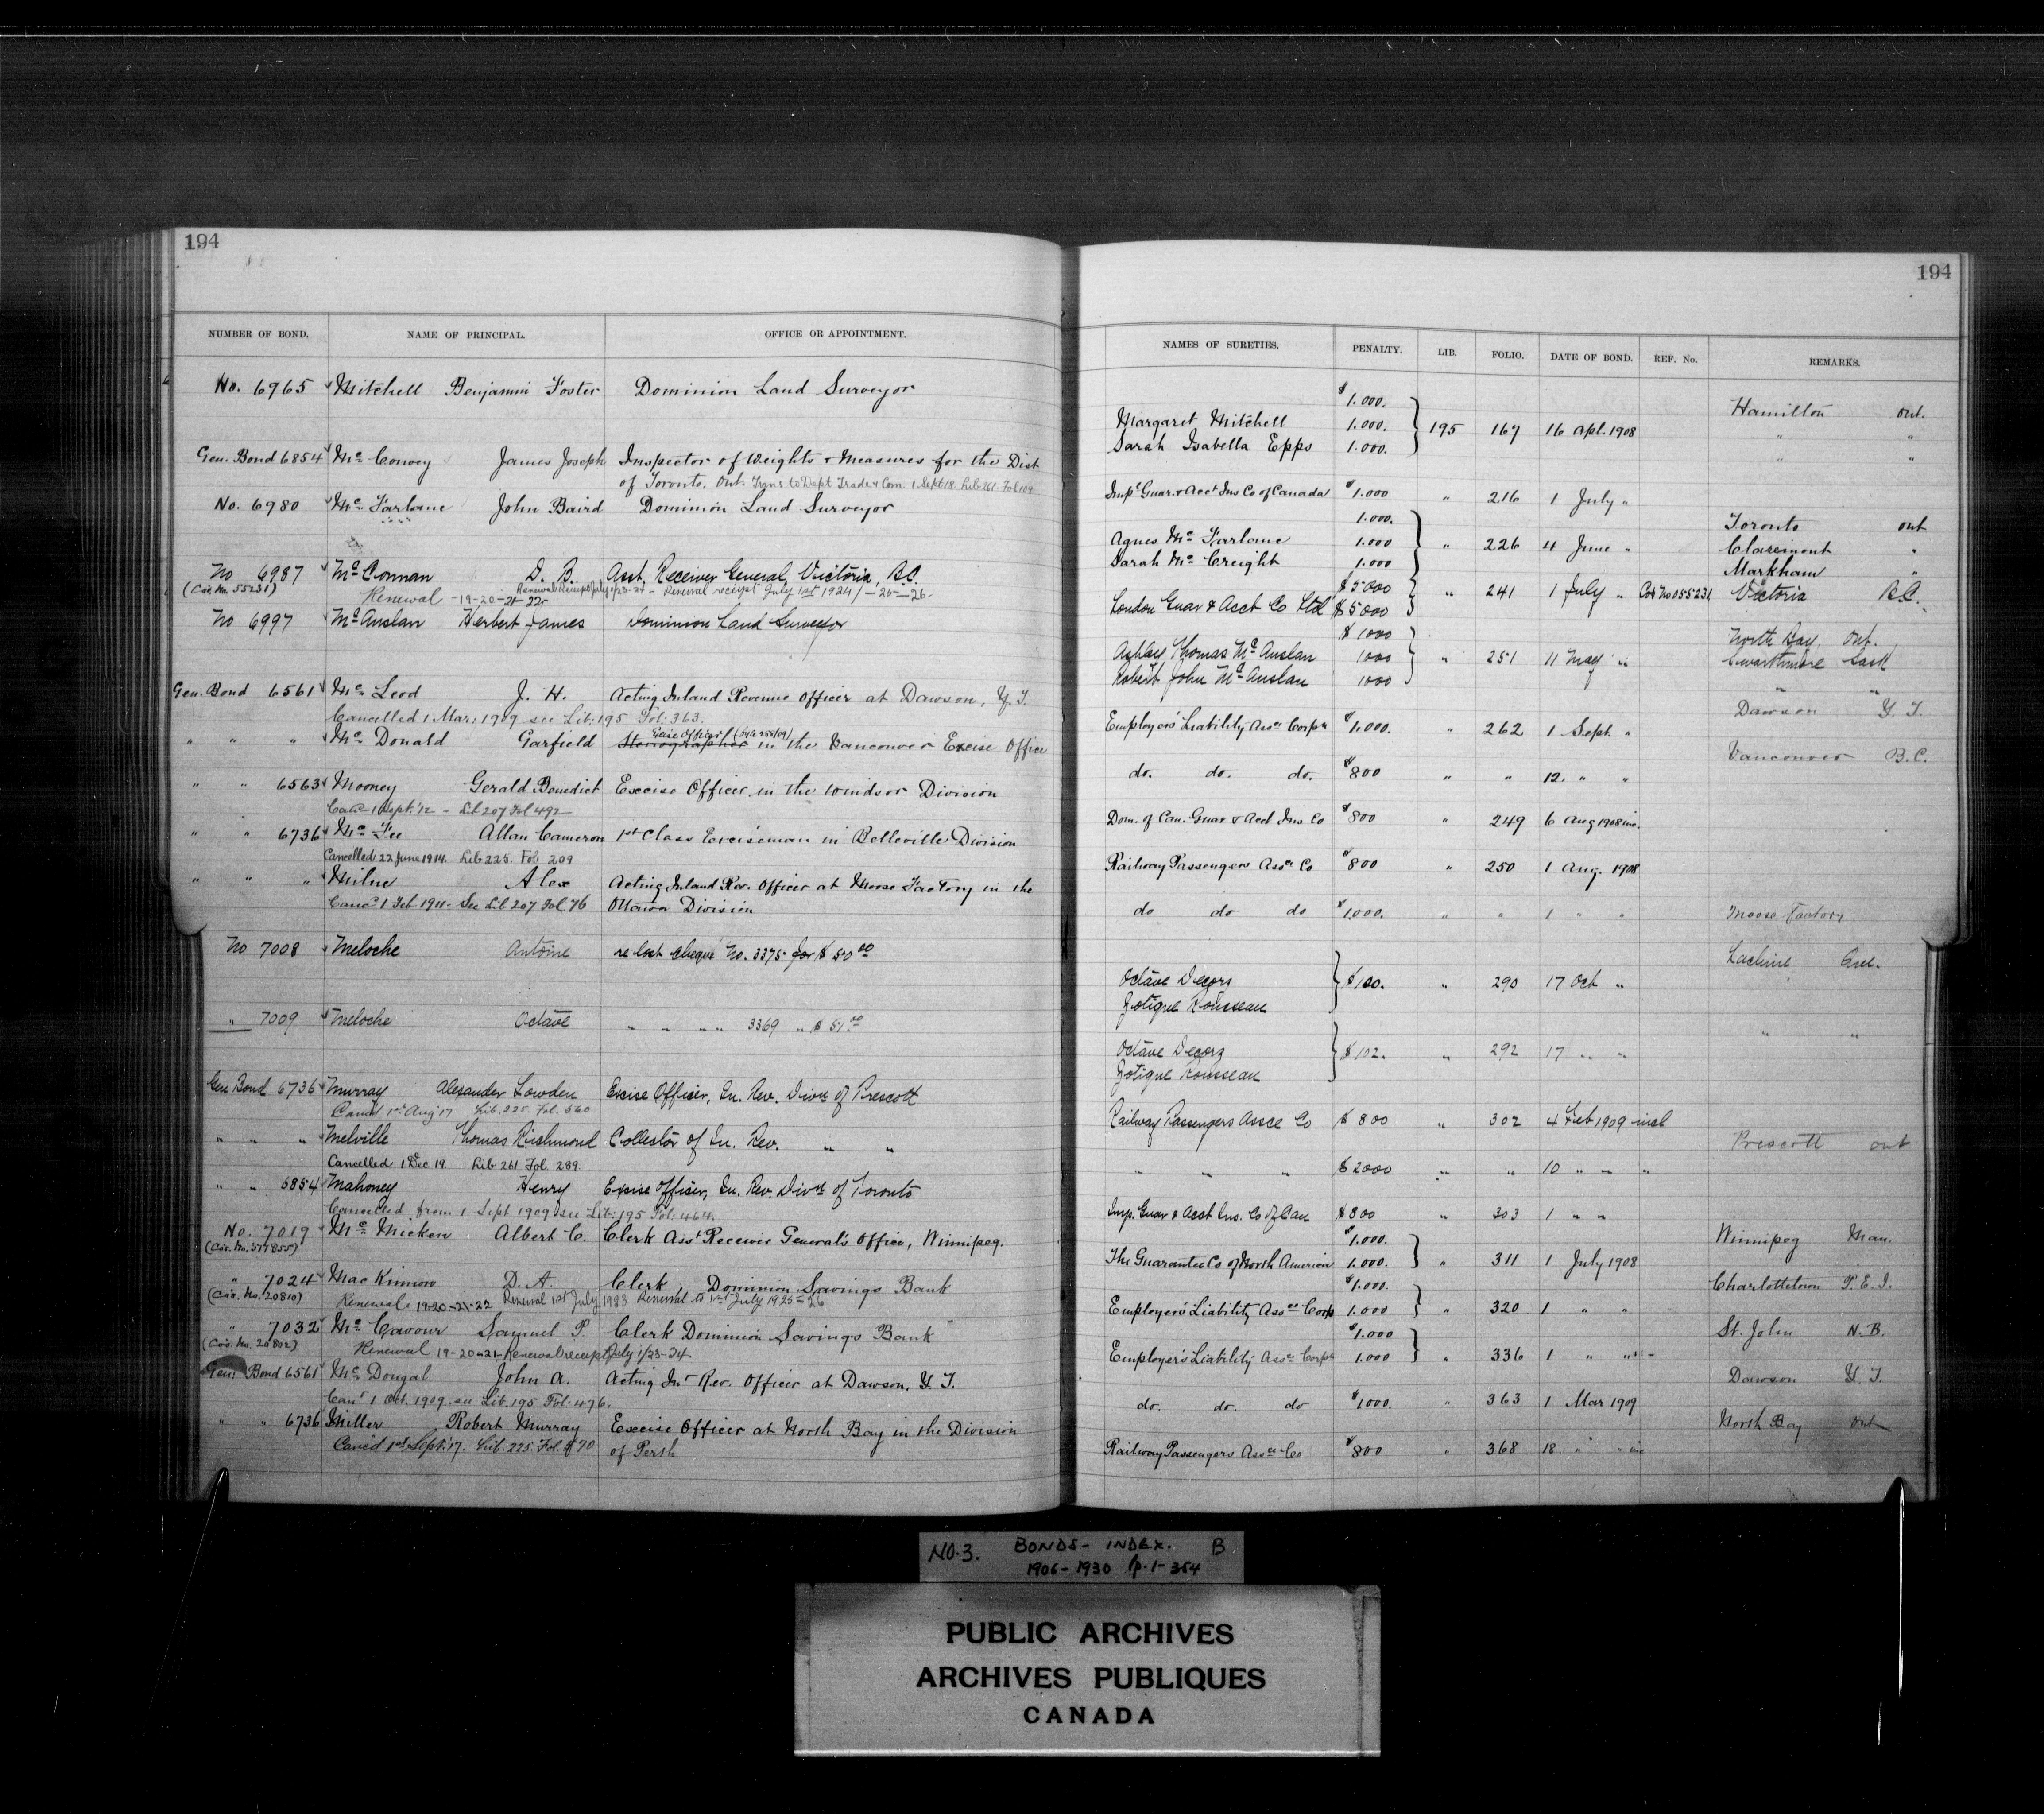 194
NUMBER OF BOND. NAME OF PRINCIPAL. OFFICE OR APPOINTMENT.
No. 6965 Mitchell Benjamin Foster Dominion Land Surveyor
Gen. Bond 6854 Mc Convey James Joseph Inspector of Weights & Measures for the Dist
of Toronto, Ont. Trans to Dept Trade & Com. 1 Sept 18 Lib 261 Fol 109
No. 6980 Mc Farlane John Baird Dominion Land Surveyor
No 6987 Mc Connan D. B. Asst. Receiver General, Victoria, B.C.
(Cov. No. 55231) Renewal Receipt July 1/23-24 - Renewal receipt July 1st 1924/-25-26-
Renewal -19-20-21-22-
No 6997 Mc Auslan Herbert James Dominion Land Surveyor
Gen. Bond 6561 Mc Leod J. H. Acting Inland Revenue Officer at Dawson, Y. T.
Cancelled 1 Mar: 1909 see Lib: 195 Fol: 363.
" " " Mc Donald Garfield Stenographer Excise Officer in the Vancouver Excise Office
" " 6563 Mooney Gerald Benedict Excise Officer in the Windsor Division
Canc 1 Sept. '12 - Lib 207 Fol 492
" " 6736 Mc Fee Allan Cameron 1st Class Exciseman in Belleville Division
Cancelled 22 June 1914. Lib 225. Fol 209
" " " Milne Alex Acting Inland Rev. Officer at Moose Factory in the
Canc 1 Feb 1911 - See Lib 207 Fol. 76 Ottawa Division
No 7008 Meloche Antoine re lost cheque No. 3375 for $ 50 00
" 7009 Meloche Octave " " " " 3369 " $ 51.00
Gen Bond 6736 Murray Alexander Lowden Excise Officer, In. Rev. Divn of Prescott
Canc'd 1st Aug '17 Lib. 225. Fol. 560
" " " Melville Thomas Richmond Collector of In. Rev. " "
Cancelled 1 Dec 19. Lib 261 Fol. 289
" " 6854 Mahoney Henry Excise Officer, In. Rev. Divn of Toronto
Cancelled from 1 Sept 1909 see Lib: 195 Fol: 464.
No. 7019 Mc Micken Albert C. Clerk Asst Receiver General's Office, Winnipeg.
" 7024 Mac Kinnon D. A. Clerk, Dominion Savings Bank
(Cov. No. 20810) Renewal 19-20-21-22 Renewal 1st July 1923 Renewal to 1st July 1925-26
" 7032 Mc Cavour Samuel P. Clerk Dominion Savings Bank
(Cov. No. 20802) Renewal 19-20-21- Renewal receipt July 1/23-24.
Gen. Bond 6561 Mc Dougal John A. Acting Inr Rev. Officer at Dawson, Y. T.
Canr 1 Oct. 1909. see Lib. 195 Fol: 476.
" " 6736 Miller Robert Murray Excise Officer at North Bay in the Division
Canc'd 1st Sept. '17. Lib. 225. Fol. 570 of Perth
194
NAMES OF SURETIES. PENALTY. LIB. FOLIO. DATE OF BOND. REF. No. REMARKS.
$ 1.000. Hamilton Ont.
Margaret Mitchell 1.000. 195 167 16 Apl. 1908 " "
Sarah Isabella Epps 1.000. " "
Impl Guar. & Acct Ins Co of Canada $1.000 " 216 1 July "
1.000. Toronto Ont
Agnes Mc Farlane 1.000 " 226 4 June " Claremont "
Sarah Mc Creight 1.000 Markham "
$5000 " 241 1 July " Cov No 055231 Victoria B.C.
London Guar & Acct Co Ltd $5000
$ 1000 North Bay. Ont.
Ashley Thomas Mc Auslan 1000 " 251 11 May " Swarthmore Sask
Robert John Mc Auslan 1000 " "
Employers' Liability Assce Corpn $1,000. " 262 1 Sept. " Dawson Y. T.
do. do. do. $800 " " 12. " " Vancouver B.C.
Dom. of Can. Guar & Acct Ins Co $800 " 249 6 Aug 1908 inc.
Railway Passengers Assce Co $800 " 250 1 Aug. 1908
do do do $1,000. " " 1 " " Moose Factory
Octave Decary $100. " 290 17 Oct " Lachine Que.
Zotique Rousseau
Octave Decary $102. " 292 17 " " " "
Zotique Rousseau
Railway Passengers Assce Co $ 800 " 302 4 Feb 1909 incl
" " " $ 2000 " " 10 " " " Prescott Ont
Imp. Guar & Acct Ins. Co of Can $ 800 " 303 1 " "
$1,000. Winnipeg Man.
The Guarantee Co of North America 1.000. " 311 1 July 1908
$1.000. Charlottetown P. E. I.
Employers' Liability Assce Corp 1.000 " 320 1 " "
$1.000 St. John N. B.
Employers' Liability Assce Corpn 1.000 " 336 1 " "
do. do. do $1000. " 363 1 Mar 1909 Dawson Y. T.
Railway Passengers Assce Co $800 " 368 18 " " inc North Bay Ont
NO. 3. BONDS - INDEX. B
1906-1930 p. 1-354
PUBLIC ARCHIVES
ARCHIVES PUBLIQUES
CANADA